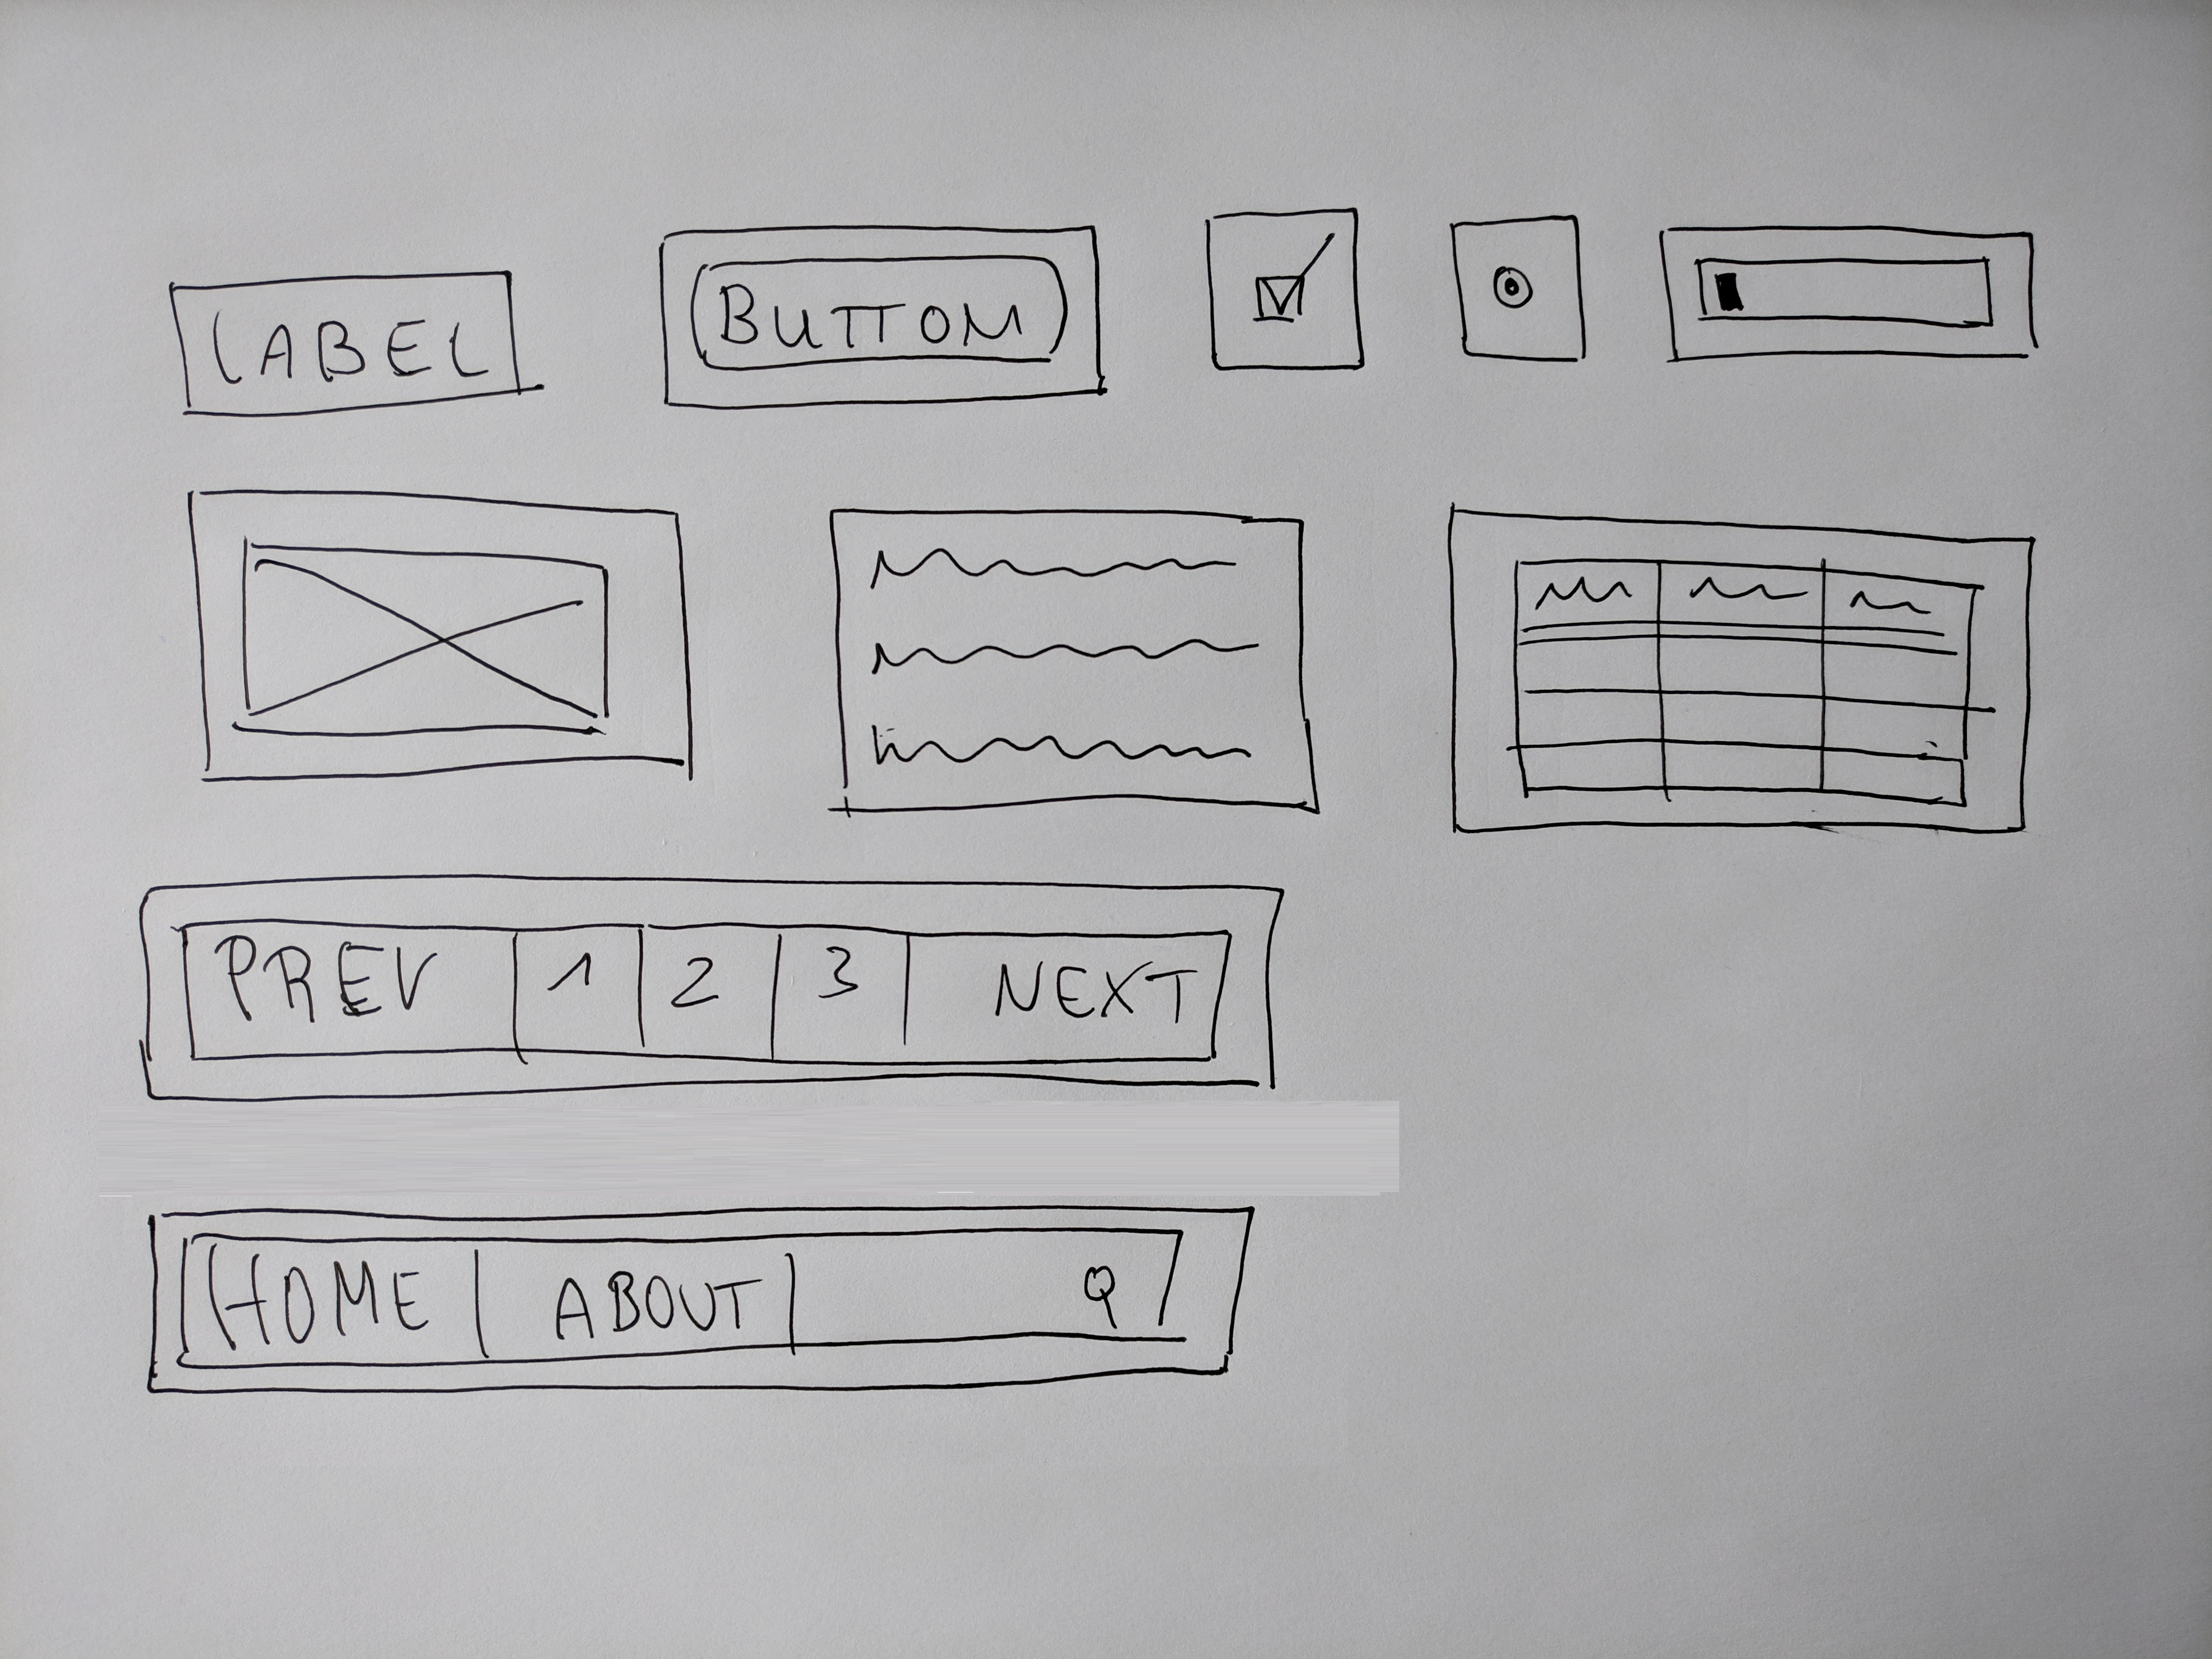 LABEL
BUTTOM
PREV 1 2 3 NEXT
HOME ABOUT